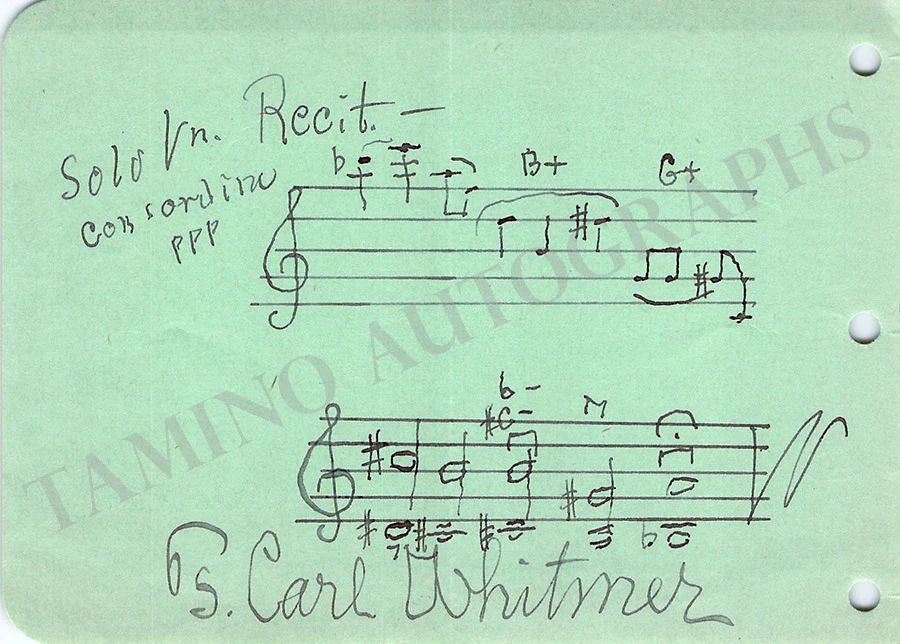 Solo Vn. Recit. –
con sordino
ppp
B+ G+
b –
#C –
T. Carl Whitmer
TAMINO AUTOGRAPHS